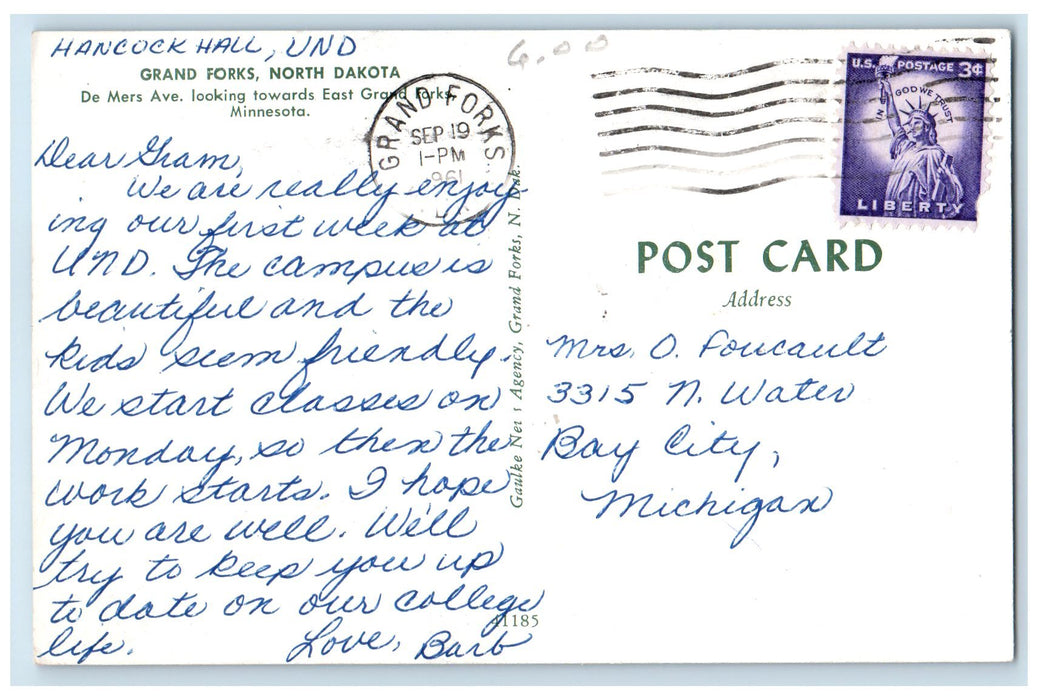 HANCOCK HALL, UND
GRAND FORKS, NORTH DAKOTA
De Mers Ave. looking towards East Grand Forks,
Minnesota.
6.00
GRAND FORKS
SEP 19
1-PM
1961
U.S. POSTAGE 3¢
IN GOD WE TRUST
LIBERTY
Dear Gram,
We are really enjoy-
ing our first week at
UND. The campus is
beautiful and the
kids seem friendly.
We start classes on
Monday, so then the
work starts. I hope
you are well. We'll
try to keep you up
to date on our college
life. Love, Barb
Gaulke News Agency, Grand Forks, N. Dak.
41185
POST CARD
Address
Mrs. O. Foucault
3315 N. Water
Bay City,
Michigan